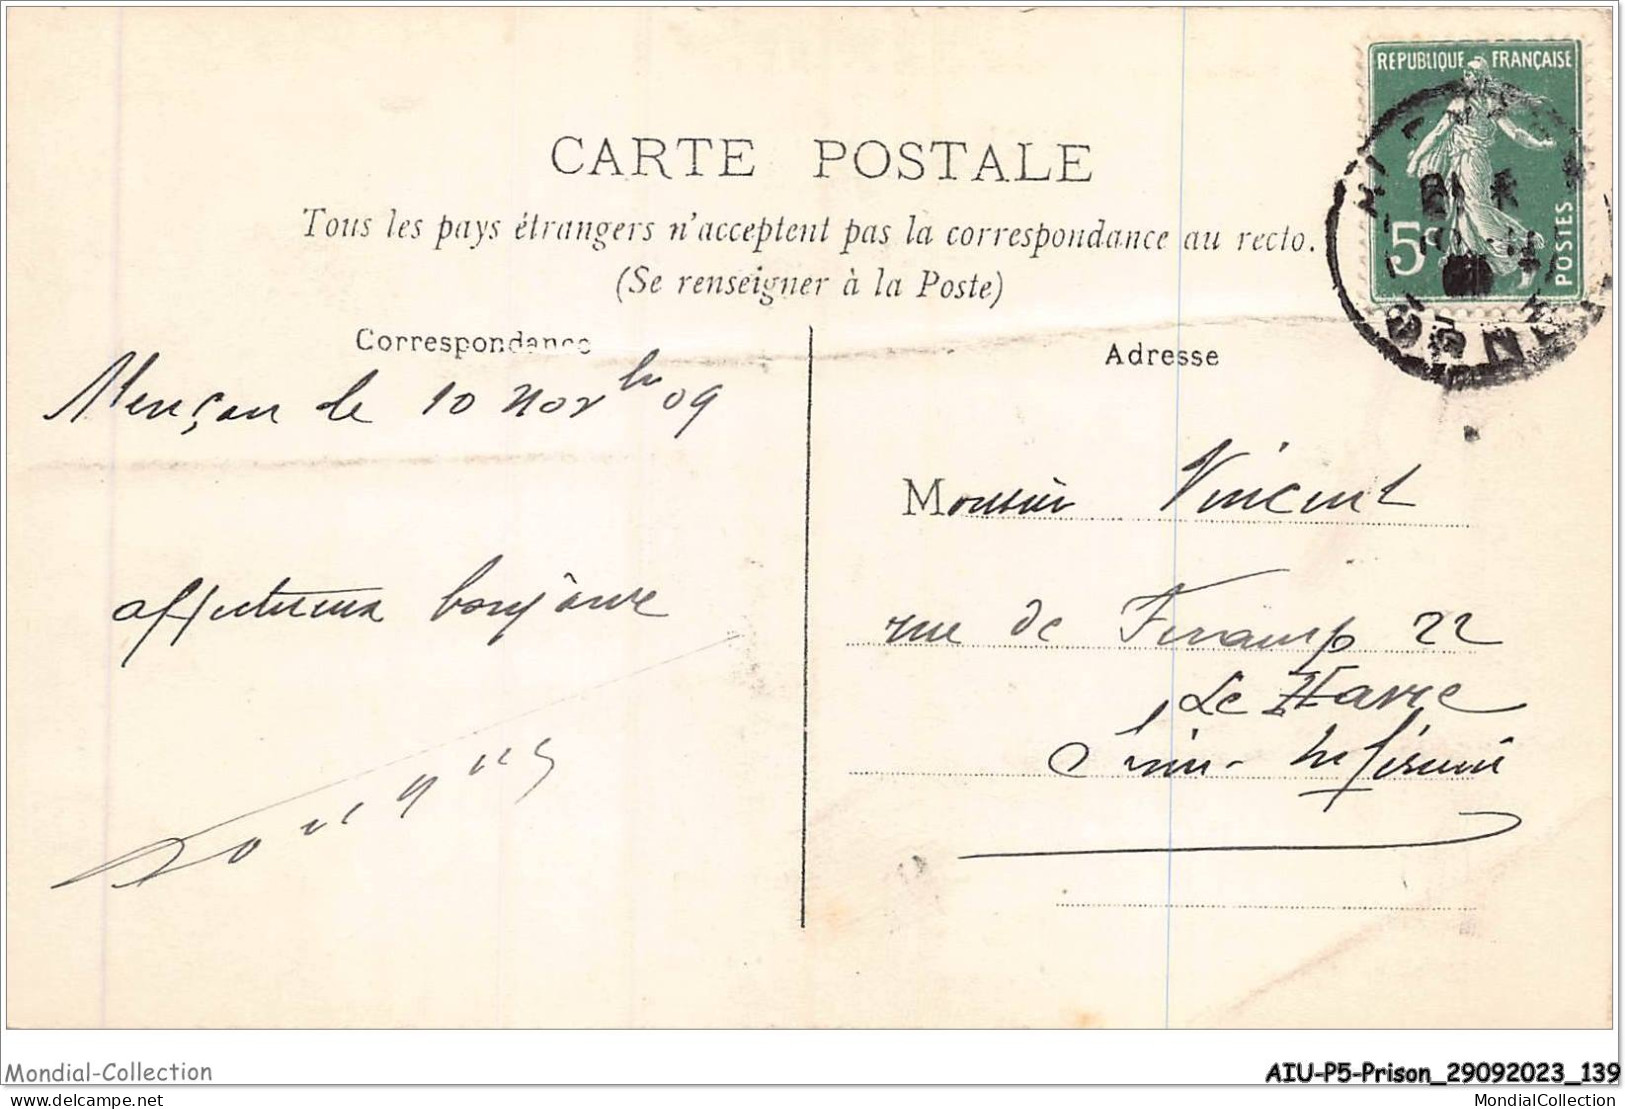 REPUBLIQUE FRANÇAISE
5c
POSTES
CARTE POSTALE
Tous les pays étrangers n'acceptent pas la correspondance au recto.
(Se renseigner à la Poste)
Correspondance
Adresse
Alençon le 10 Novbre 09
Monsieur Vincent
affectueux bonjour
rue de Fécamp 22
Le Havre
Seine-Inférieure
Mondial-Collection
AIU-P5-Prison_29092023_139
delcampe.net
MondialCollection